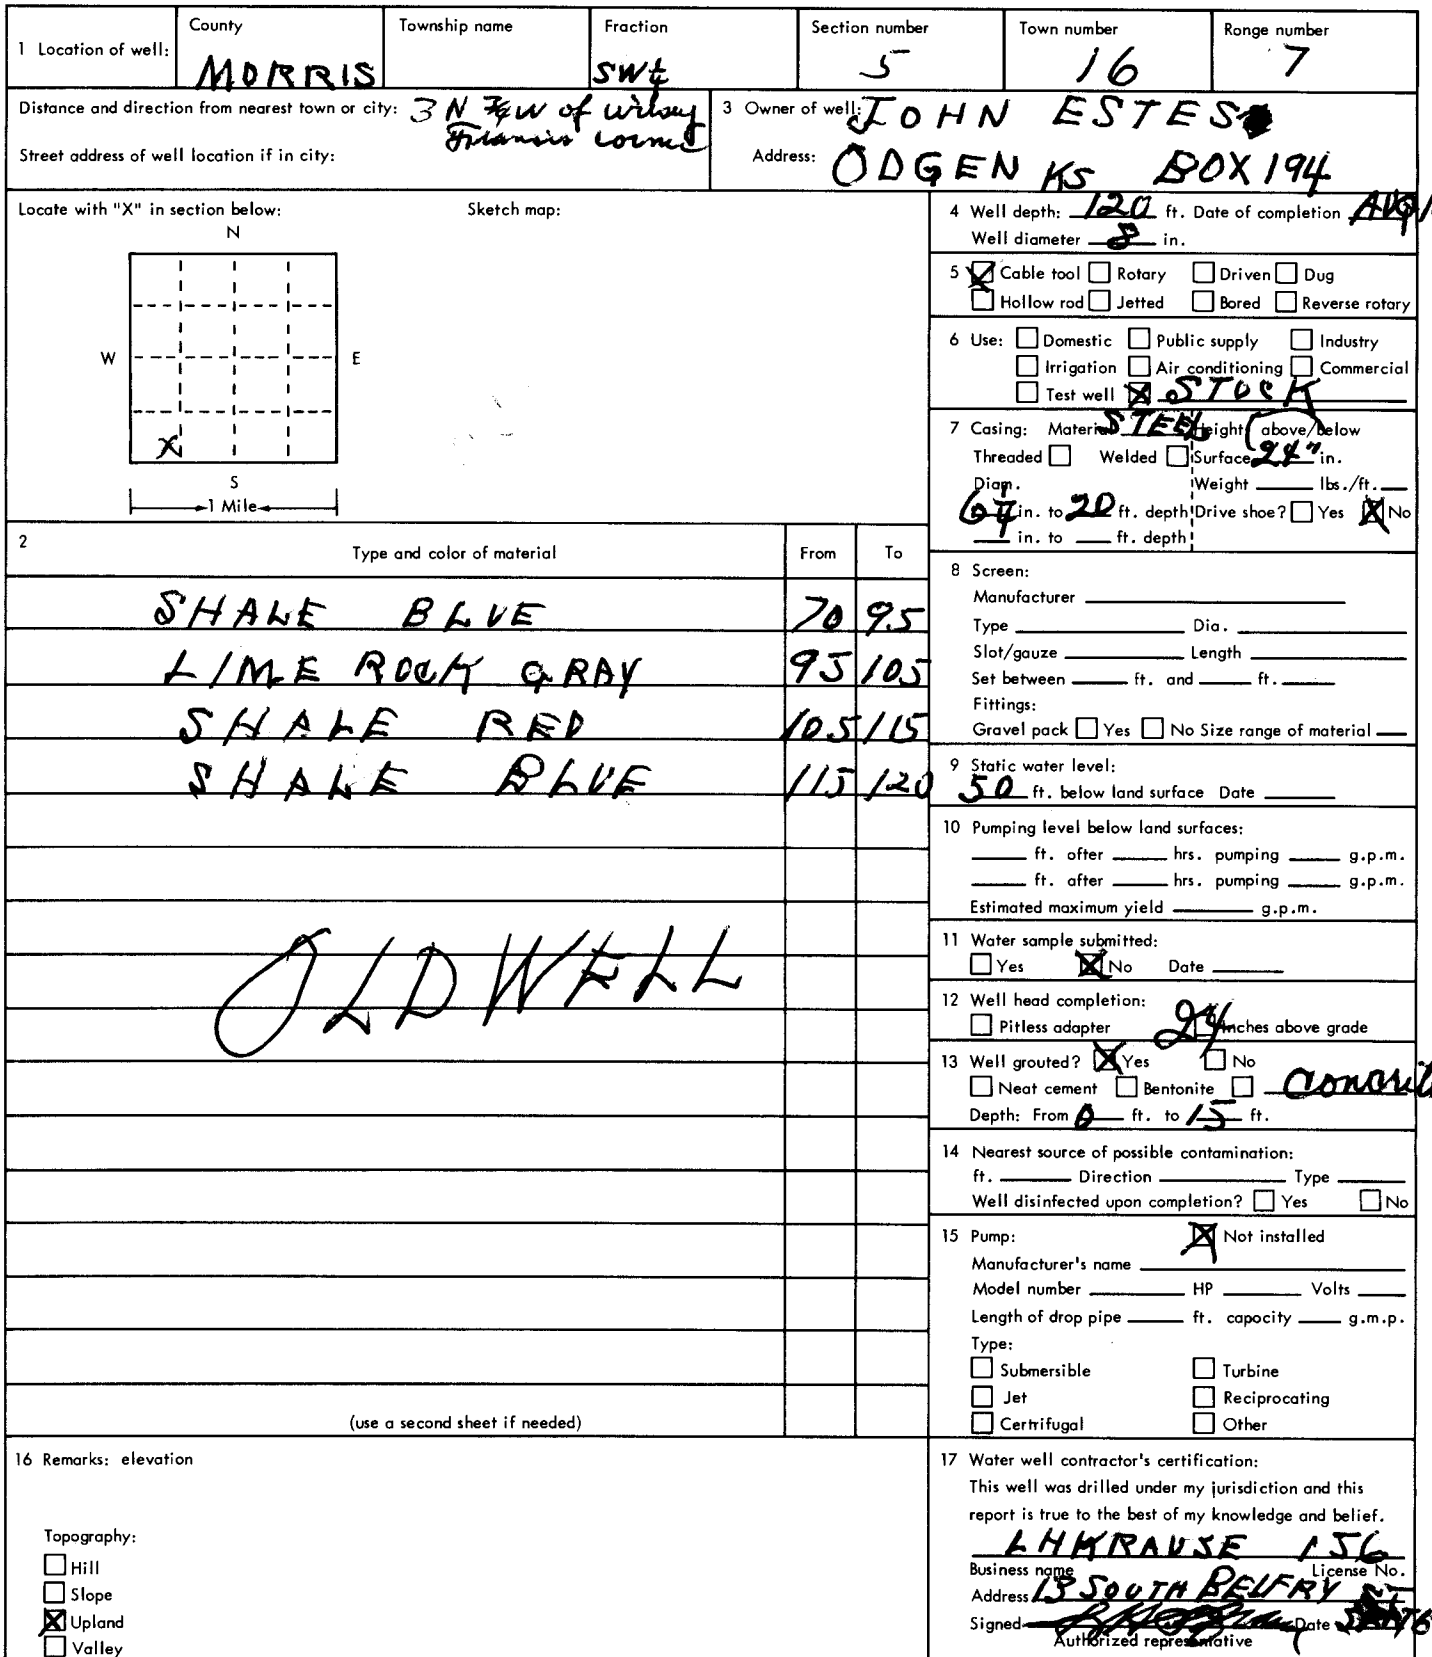 1 Location of well:
County
MORRIS
Township name
Fraction
SW¼
Section number
5
Town number
16
Range number
7
Distance and direction from nearest town or city: 3 N ¾W of Wilsey
Street address of well location if in city:
3 Owner of well: JOHN ESTES
Address: ODGEN KS BOX 194
Locate with "X" in section below:
Sketch map:
N
W
E
X
S
1 Mile
4 Well depth: 120 ft. Date of completion AUG
Well diameter 8 in.
5 X Cable tool Rotary Driven Dug
Hollow rod Jetted Bored Reverse rotary
6 Use: Domestic Public supply Industry
Irrigation Air conditioning Commercial
Test well X STOCK
7 Casing: Material STEEL Height: above/below
Threaded Welded Surface 24" in.
Diam. Weight lbs./ft.
6¼ in. to 20 ft. depth Drive shoe? Yes X No
in. to ft. depth
2
Type and color of material From To
SHALE BLUE 70 95
LIME ROCK GRAY 95 105
SHALE RED 105 115
SHALE BLUE 115 120
OLD WELL
(use a second sheet if needed)
8 Screen:
Manufacturer
Type Dia.
Slot/gauze Length
Set between ft. and ft.
Fittings:
Gravel pack Yes No Size range of material
9 Static water level:
50 ft. below land surface Date
10 Pumping level below land surfaces:
ft. after hrs. pumping g.p.m.
ft. after hrs. pumping g.p.m.
Estimated maximum yield g.p.m.
11 Water sample submitted:
Yes X No Date
12 Well head completion:
Pitless adapter 24 Inches above grade
13 Well grouted? X Yes No
Neat cement Bentonite concrite
Depth: From 0 ft. to 15 ft.
14 Nearest source of possible contamination:
ft. Direction Type
Well disinfected upon completion? Yes No
15 Pump: X Not installed
Manufacturer's name
Model number HP Volts
Length of drop pipe ft. capacity g.m.p.
Type:
Submersible Turbine
Jet Reciprocating
Certrifugal Other
16 Remarks: elevation
Topography:
Hill
Slope
X Upland
Valley
17 Water well contractor's certification:
This well was drilled under my jurisdiction and this
report is true to the best of my knowledge and belief.
LHKRAUSE 156
Business name License No.
Address 13 SOUTH BELFRY ST
Signed Date
Authorized representative